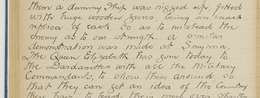 Then a dummy Ship was rigged up fitted
with huge wooden guns being an exact
replica of each so as to mislead the
enemy as to our strength. A similar
demonstration was made at Smyrna.
The Queen Elizabeth has gone today to
the Dardanelles with all the Military
Commandants, to show them around so
that they can get an idea of the Country
they have to